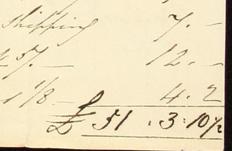 Shipping 7. –
257. – 12. –
1 1/8 – 4. 2
£ 51 . 3 . 10 1/2